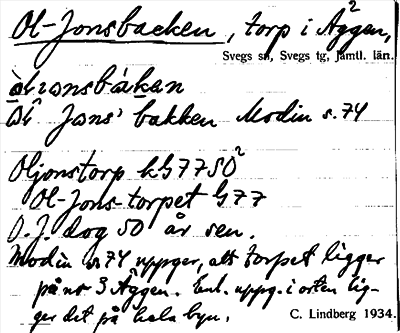 Ol-Jonsbacken, torp i Äggen,
Svegs sn, Svegs tg, Jämtl. län.
Ol Jons' bakken Modin s. 74
Oljonstorp kG77SO
Ol-Jons-torpet G77
O.J. dog 50 år sen.
Modin s. 74 uppger, att torpet ligger
på nr 3 Äggen. Enl. uppg. i orten lig-
ger det på hela byn. C. Lindberg 1934.